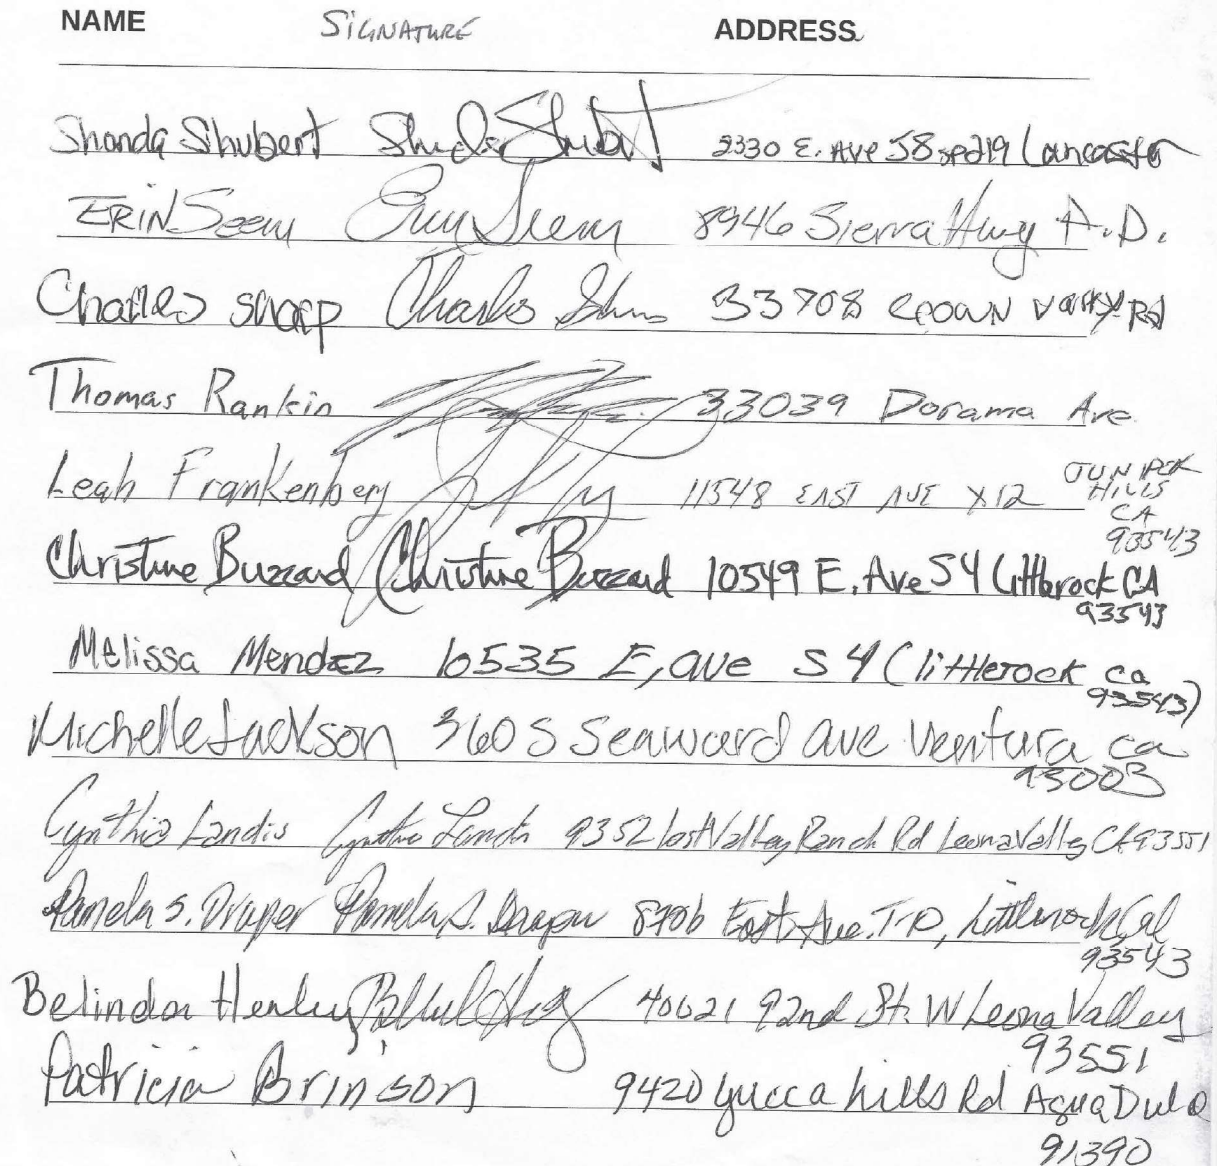 NAME SIGNATURE ADDRESS
Shanda Shubert 2330 E. Ave J8 sp219 Lancaster
ERIN Seem Erin Seem 8946 Sierra Hwy A.D.
Charles Sharp Charles 33708 CROWN VALLEY Rd
Thomas Rankin 33039 Dorama Ave
Leah Frankenberg 11548 EAST AVE X12 JUNIPER
HILLS
CA
93543
Christine Buzzard Christine Buzzard 10549 E. Ave S4 Littlerock CA
93543
Melissa Mendez 10535 E, ave S4 (littlerock ca
93543)
Michelle Jackson 360 S Seaward ave Ventura ca
93003
Cynthia Landis Cynthia Landis 9352 lost Valley Ranch Rd Leona Valley CA 93551
Pamela S. Draper Pamela S. Draper 8706 East Ave. T-10, Littlerock, Cal
93543
Belinda Henley 40621 92nd St. W Leona Valley
93551
Patricia Brinson 9420 yucca hills Rd Agua Dulce
91390